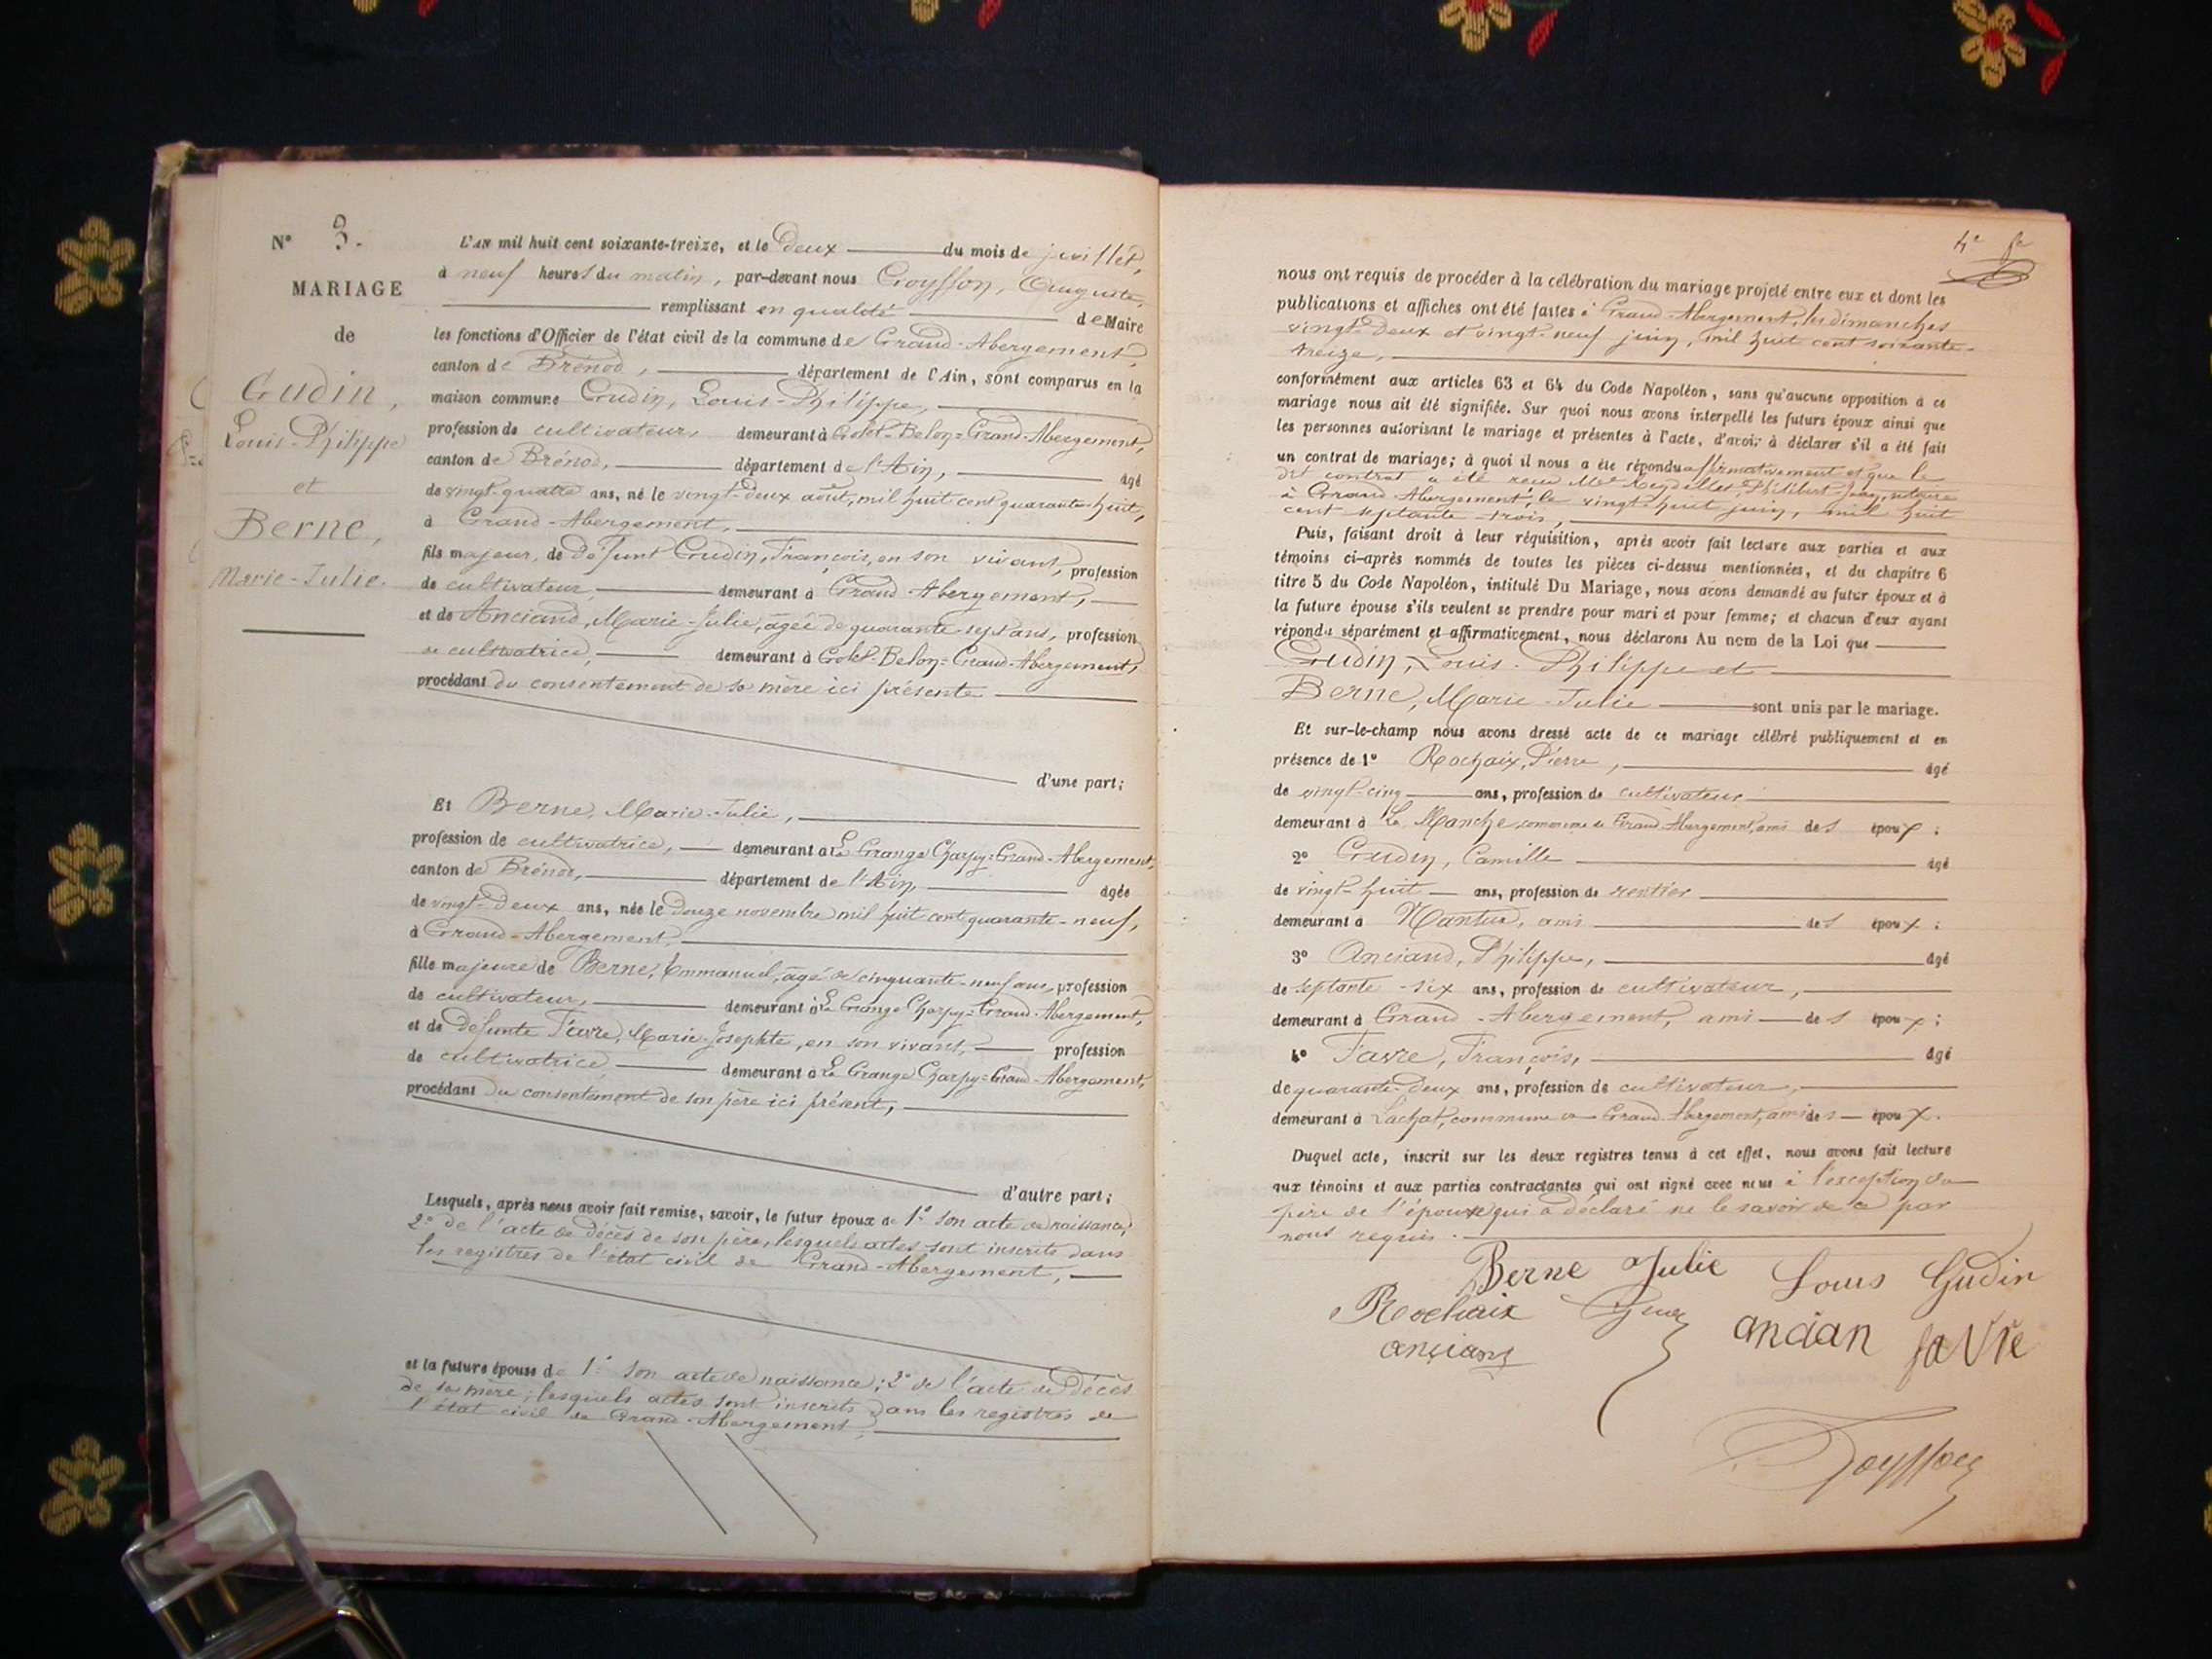 N° 3.
MARIAGE
de
Gudin,
Louis-Philippe
et
Berne,
Marie-Julie.
L'AN mil huit cent soixante-treize, et le deux du mois de juillet,
à neuf heures du matin, par-devant nous Goyffon, Auguste,
remplissant en qualité de Maire
les fonctions d'Officier de l'état civil de la commune de Grand-Abergement,
canton de Brénod, département de l'Ain, sont comparus en la
maison commune Gudin, Louis-Philippe,
profession de cultivateur, demeurant à Golet-Belon=Grand-Abergement,
canton de Brénod, département de l'Ain, âgé
de vingt-quatre ans, né le vingt-deux août, mil huit cent quarante-huit,
à Grand-Abergement,
fils majeur, de défunt Gudin, François, en son vivant, profession
de cultivateur, demeurant à Grand-Abergement,
et de Anciand, Marie-Julie, âgée de quarante-sept ans, profession
de cultivatrice, demeurant à Golet-Belon=Grand-Abergement,
procédant du consentement de sa mère ici présente
d'une part;
Et Berne, Marie-Julie,
profession de cultivatrice, demeurant à La Grange Charpy=Grand-Abergement,
canton de Brénod, département de l'Ain, âgée
de vingt-deux ans, née le douze novembre mil huit cent quarante-neuf,
à Grand-Abergement,
fille majeure de Berne, Emmanuel, âgé de cinquante-neuf ans, profession
de cultivateur, demeurant à La Grange Charpy=Grand-Abergement,
et de défunte Favre, Marie-Josephte, en son vivant, profession
de cultivatrice demeurant à La Grange Charpy=Grand-Abergement,
procédant du consentement de son père ici présent,
d'autre part;
Lesquels, après nous avoir fait remise, savoir, le futur époux de 1° son acte de naissance,
2° de l'acte de décès de son père, lesquels actes sont inscrits dans
les registres de l'état civil de Grand-Abergement,
et la future épouse de 1° son acte de naissance; 2° de l'acte de décès
de sa mère; lesquels actes sont inscrits dans les registres de
l'état civil de Grand-Abergement,
nous ont requis de procéder à la célébration du mariage projeté entre eux et dont les
publications et affiches ont été faites à Grand-Abergement, les dimanches
vingt-deux et vingt-neuf juin, mil huit cent soixante-
treize,
conformément aux articles 63 et 64 du Code Napoléon, sans qu'aucune opposition à ce
mariage nous ait été signifiée. Sur quoi nous avons interpellé les futurs époux ainsi que
les personnes autorisant le mariage et présentes à l'acte, d'avoir à déclarer s'il a été fait
un contrat de mariage; à quoi il nous a été répondu affirmativement et que le
dit contrat a été reçu Me Philibert notaire
à Grand-Abergement, le vingt-huit juin, mil huit
cent septante-trois,
Puis, faisant droit à leur réquisition, après avoir fait lecture aux parties et aux
témoins ci-après nommés de toutes les pièces ci-dessus mentionnées, et du chapitre 6
titre 5 du Code Napoléon, intitulé Du Mariage, nous avons demandé au futur époux et à
la future épouse s'ils veulent se prendre pour mari et pour femme; et chacun d'eux ayant
répondu séparément et affirmativement, nous déclarons Au nom de la Loi que
Gudin, Louis-Philippe et
Berne, Marie-Julie sont unis par le mariage.
Et sur-le-champ nous avons dressé acte de ce mariage célébré publiquement et en
présence de 1° Rochaix, Pierre, âgé
de vingt-cinq ans, profession de cultivateur
demeurant à La Manche, commune de Grand-Abergement, ami des époux;
2° Gudin, Camille âgé
de vingt-huit ans, profession de rentier
demeurant à Nantua, ami des époux;
3° Anciand, Philippe, âgé
de septante-six ans, profession de cultivateur,
demeurant à Grand-Abergement, ami des époux;
4° Favre, François, âgé
de quarante-deux ans, profession de cultivateur,
demeurant à Lachat, commune de Grand-Abergement, ami des époux.
Duquel acte, inscrit sur les deux registres tenus à cet effet, nous avons fait lecture
aux témoins et aux parties contractantes qui ont signé avec nous à l'exception du
père de l'épouse qui a déclaré ne le savoir de ce par
nous requis.
Berne Julie Louis Gudin
Rochaix ancian favre
anciand
Goyffon